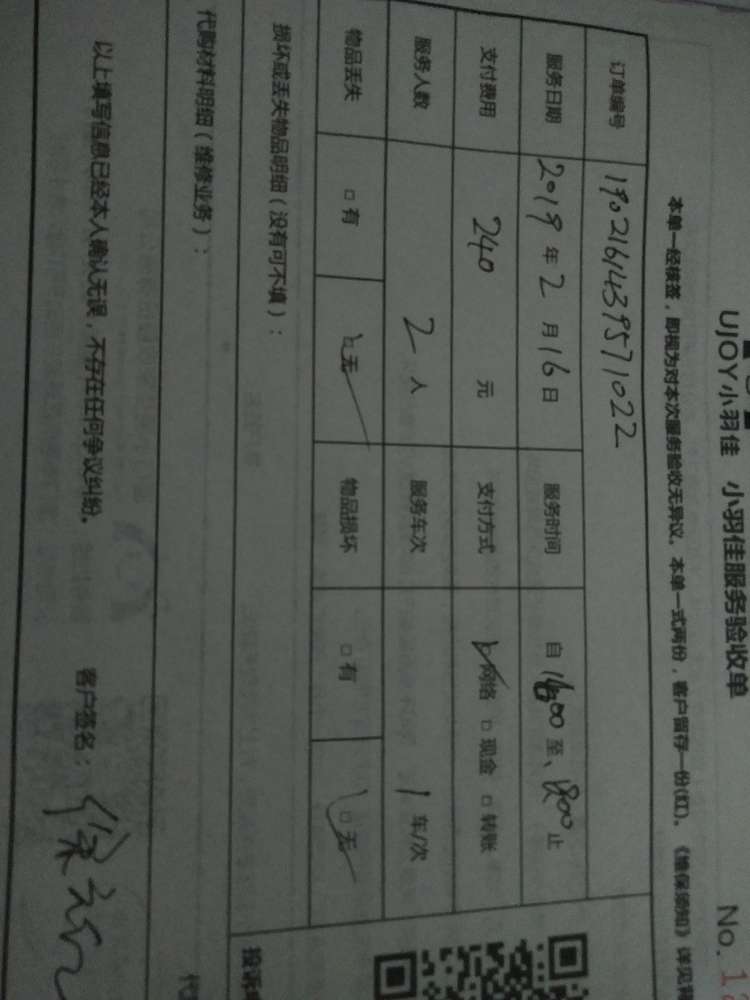 UJOY小羽佳 小羽佳服务验收单 No. 1
本单一经核签，即视为对本次服务验收无异议。本单一式两份，客户留存一份(红)。《维保须知》详见背
订单编号 190216143957 1022
服务日期 2019 年 2 月 16 日 服务时间 自 至 止
支付费用 240 元 支付方式 网络 □ 现金 □ 转账
服务人数 2 人 服务车次 1 车/次
物品丢失 □ 有 □ 无 物品损坏 □ 有 □ 无
损坏或丢失物品明细（没有可不填）：
投诉
代购材料明细（维修业务）：
代
以上填写信息已经本人确认无误，不存在任何争议纠纷。 客户签名：